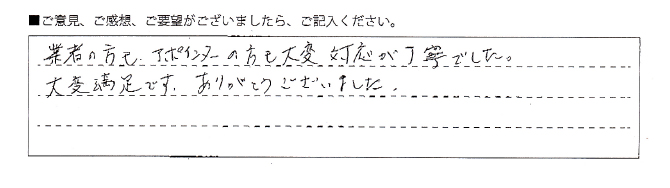 ■ご意見、ご感想、ご要望がございましたら、ご記入ください。
業者の方も、アポインターの方も大変対応が丁寧でした。
大変満足です。ありがとうございました。